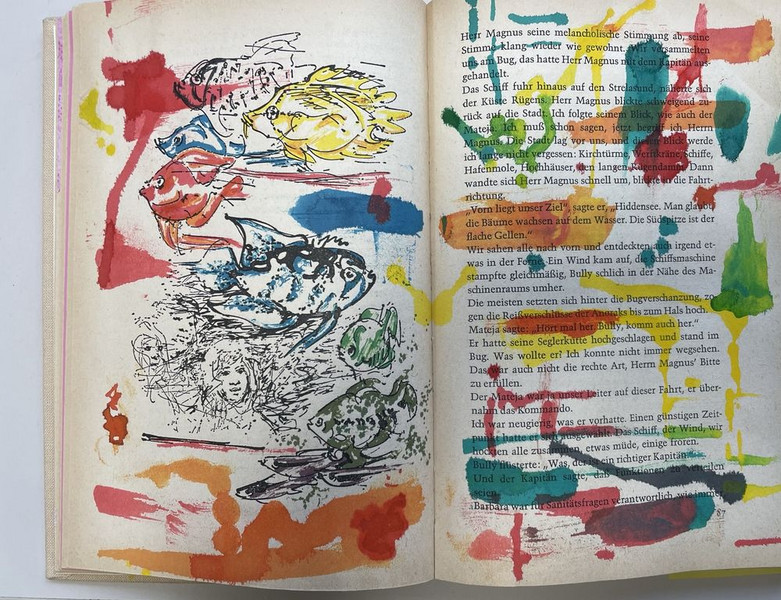 Herr Magnus seine melancholische Stimmung ab, seine
Stimme klang wieder wie gewohnt. Wir versammelten
uns am Bug, das hatte Herr Magnus mit dem Kapitän aus-
gehandelt.
Das Schiff fuhr hinaus auf den Strelasund, näherte sich
der Küste Rügens. Herr Magnus blickte schweigend zu-
rück auf die Stadt. Ich folgte seinem Blick, wie auch der
Mateja. Ich muß schon sagen, jetzt begriff ich Herrn
Magnus. Die Stadt lag vor uns, und den Blick werde
ich lange nicht vergessen: Kirchtürme, Werftkräne, Schiffe,
Hafenmole, Hochhäuser, im langen Rugendamm. Dann
wandte sich Herr Magnus schnell um, blickte in die Fahrt-
richtung.
„Vorn liegt unser Ziel“, sagte er, „Hiddensee. Man glaubt,
die Bäume wachsen auf dem Wasser. Die Südspitze ist der
flache Gellen.“
Wir sahen alle nach vorn und entdeckten auch irgend et-
was in der Ferne. Ein Wind kam auf, die Schiffsmaschine
stampfte gleichmäßig, Bully schlich in der Nähe des Ma-
schinenraums umher.
Die meisten setzten sich hinter die Bugverschanzung, zo-
gen die Reißverschlüsse der Anoraks bis zum Hals hoch.
Mateja sagte: „Hört mal her, Bully, komm auch her.“
Er hatte seine Seglerkutte hochgeschlagen und stand im
Bug. Was wollte er? Ich konnte nicht immer wegsehen.
Das war auch nicht die rechte Art, Herrn Magnus’ Bitte
zu erfüllen.
Der Mateja war ja unser Leiter auf dieser Fahrt, er über-
nahm das Kommando.
Ich war neugierig, was er vorhatte. Einen günstigen Zeit-
punkt hatte er sich ausgewählt. Das Schiff, der Wind, wir
hockten alle zusammen, etwas müde, einige froren.
Bully flüsterte: „Was, der ist ein richtiger Kapitän.“
Und der Kapitän sagte, daß Funktionen zu verteilen
seien.
Barbara war für Sanitätsfragen verantwortlich, wie immer
87